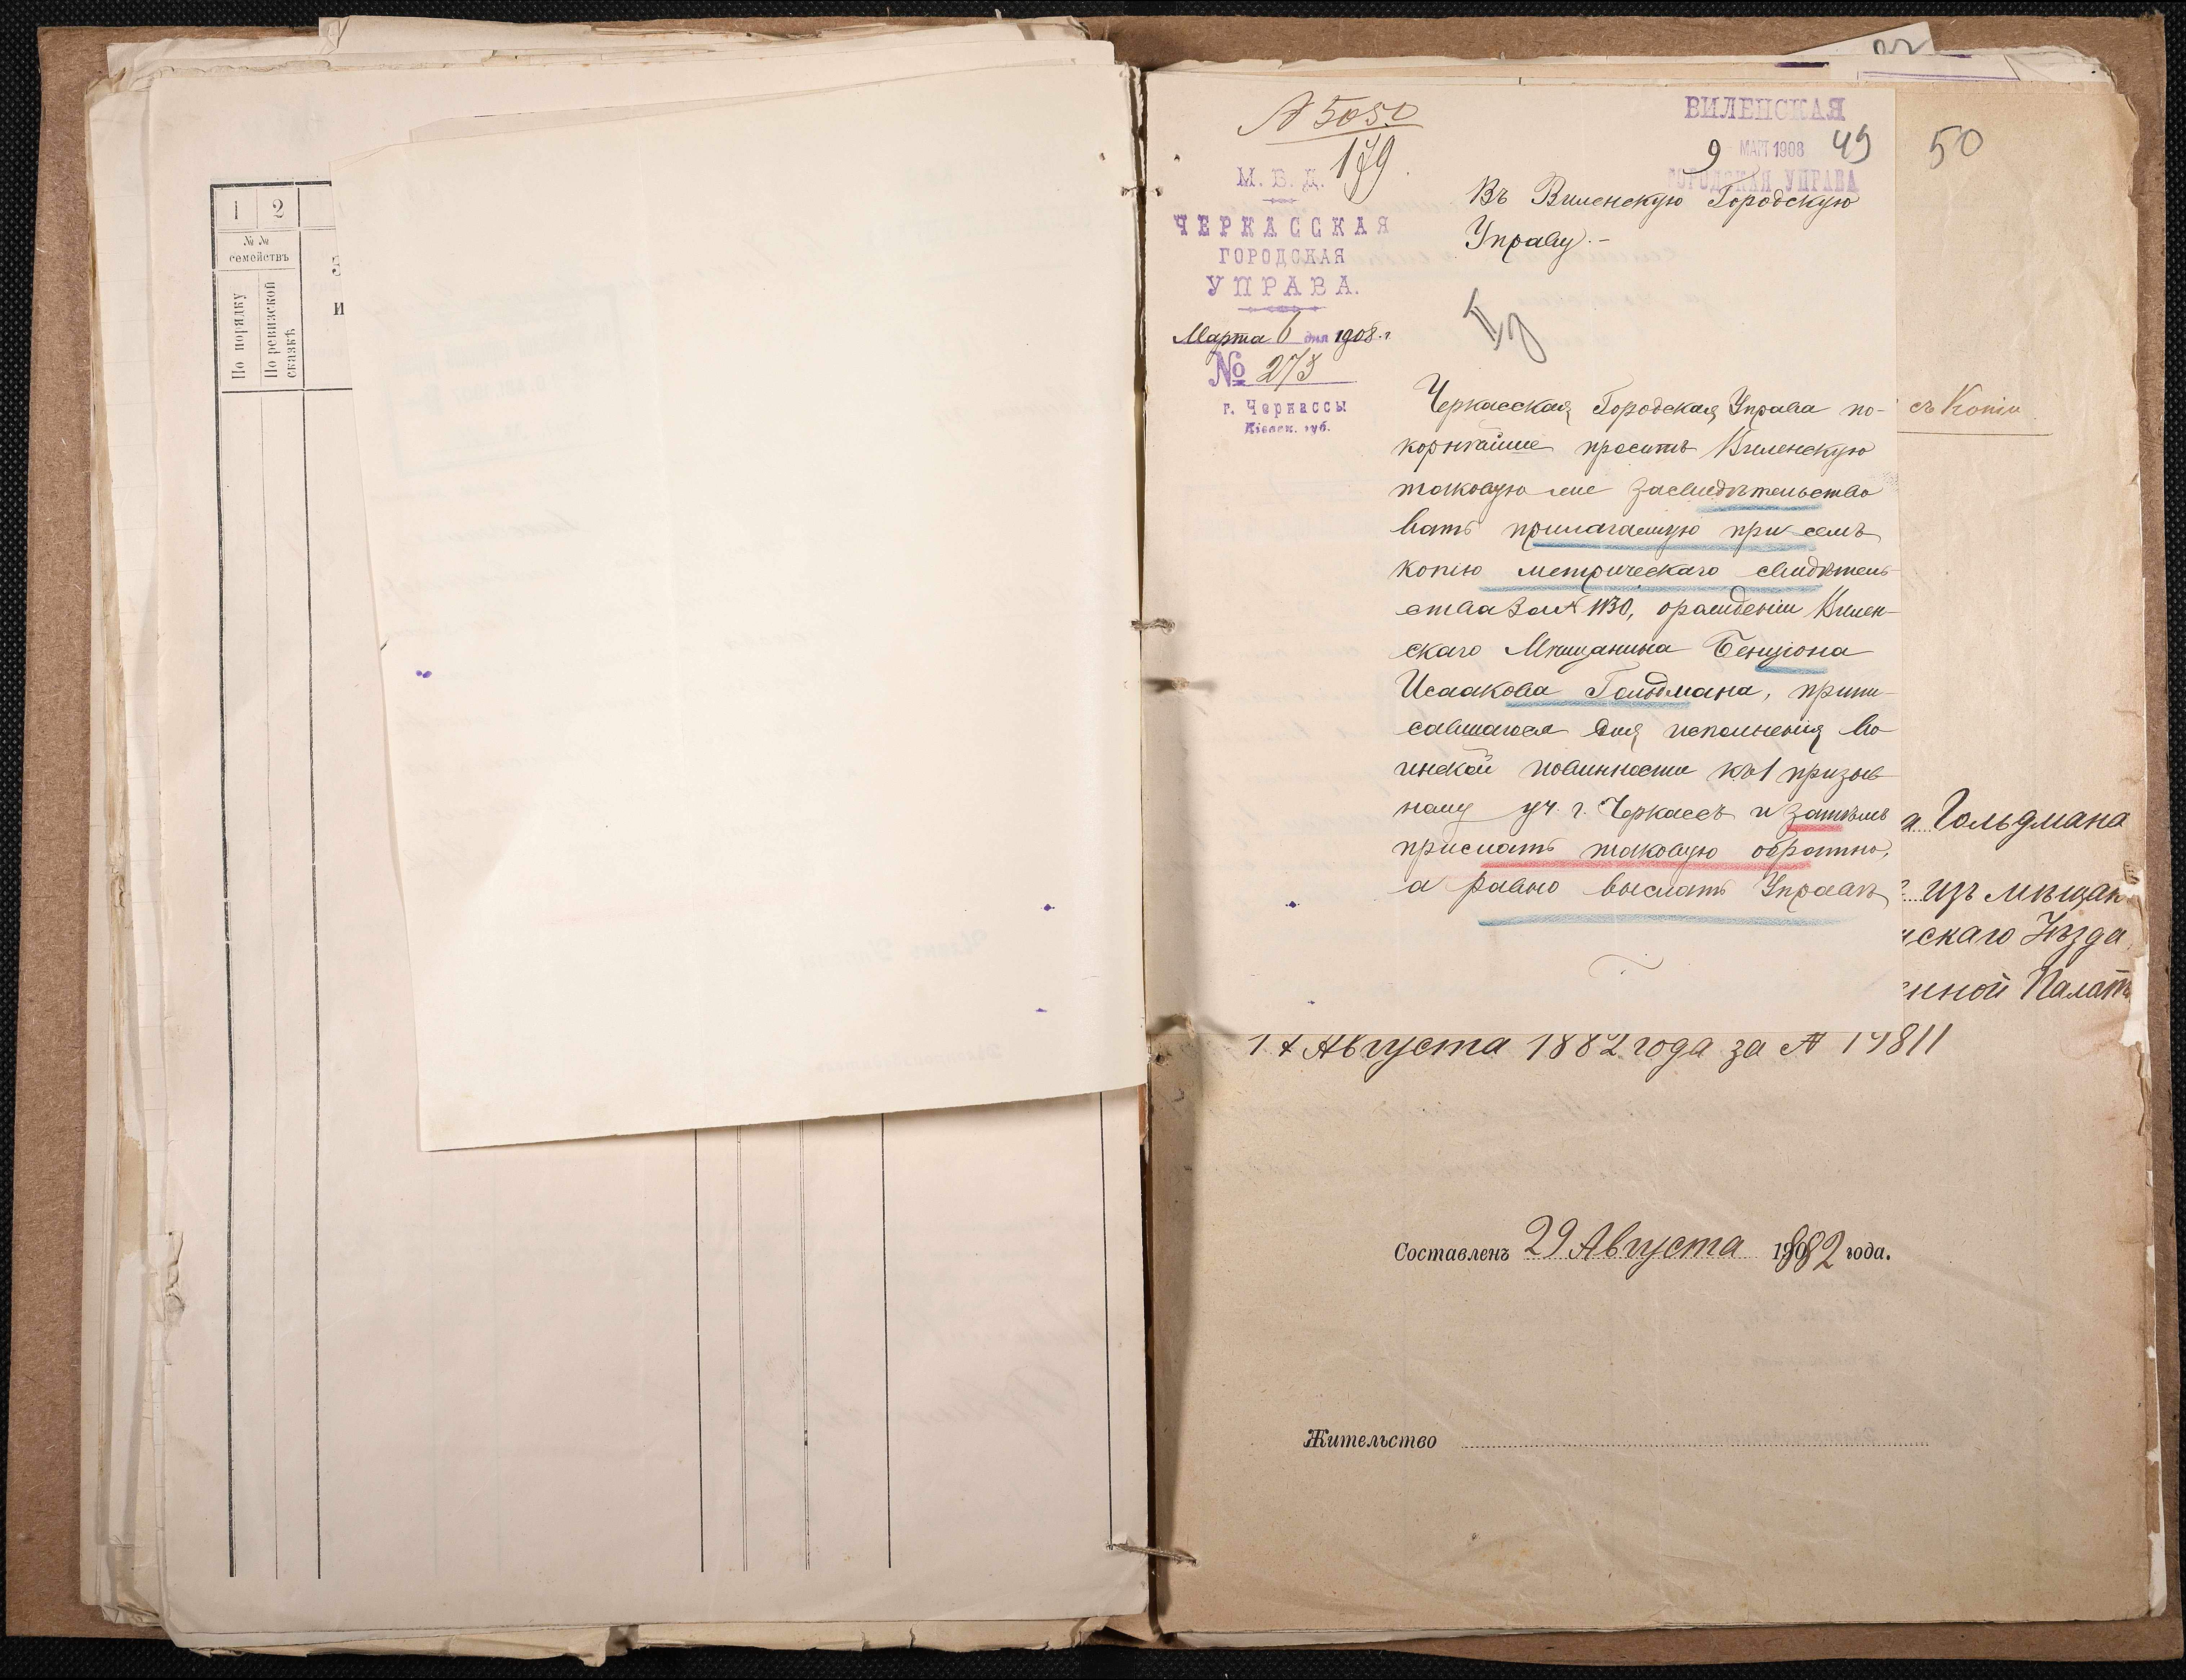 1 2
№ №
семействъ
По порядку
По ревизской
сказкѣ
И
№ 5050
179
М. В. Д.
ЧЕРКАССКАЯ
ГОРОДСКАЯ
УПРАВА.
Марта 6 дня 1908 г.
№ 273
г. Черкассы
Кіевск. губ.
ВИЛЕНСКАЯ
9 МАР 1908
ГОРОДСКАЯ УПРАВА
49
50
Въ Виленскую Городскую
Управу.-
Черкасская Городская Управа по-
корнѣйше проситъ Виленскую
таковую же засвидѣтельство
вать прилагаемую при семъ
копію метрическаго свидѣтель
ства за № 1130, о рожденіи Вилен-
скаго Мѣщанина Бенціона
Исаакова Гольдмана, припи-
савшагося для исполненія во
инской повинности къ 1 призыв
ному уч. г. Черкассъ и затѣмъ
прислать таковую обратно,
а равно выслать Управѣ
съ Копіи
а Гольдмана
изъ мѣщан
скаго Уѣзда
енной Палаты
17 Августа 1882 года за № 19811
Составленъ 29 Августа 1882 года.
Жительство